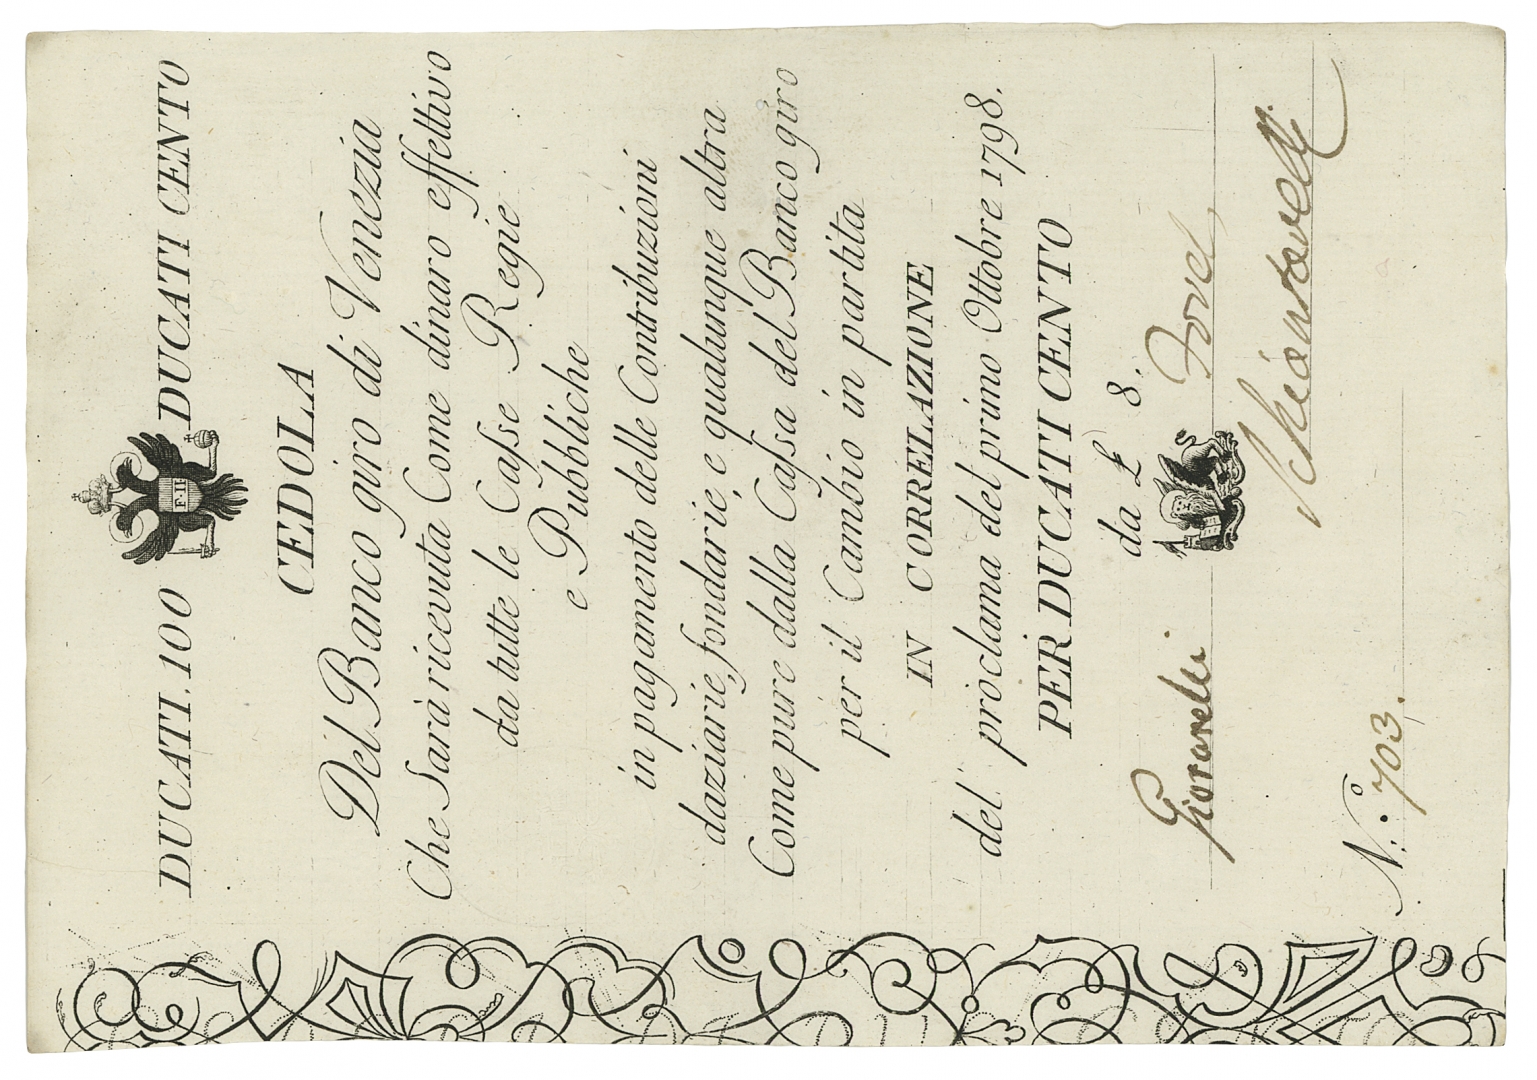 DUCATI. 100 DUCATI CENTO
F. II.
CEDOLA
Del Banco giro di Venezia
Che Sarà ricevuta Come dinaro effettivo
da tutte le Casse Regie
e Pubbliche
in pagamento delle Contribuzioni
daziarie, fondarie, e qualunque altra
Come pure dalla Cassa del Banco giro
per il Cambio in partita
IN CORRELAZIONE
del proclama del primo Ottobre 1798.
PER DUCATI CENTO
da £ 8.
Giovanelli
N.º 703.